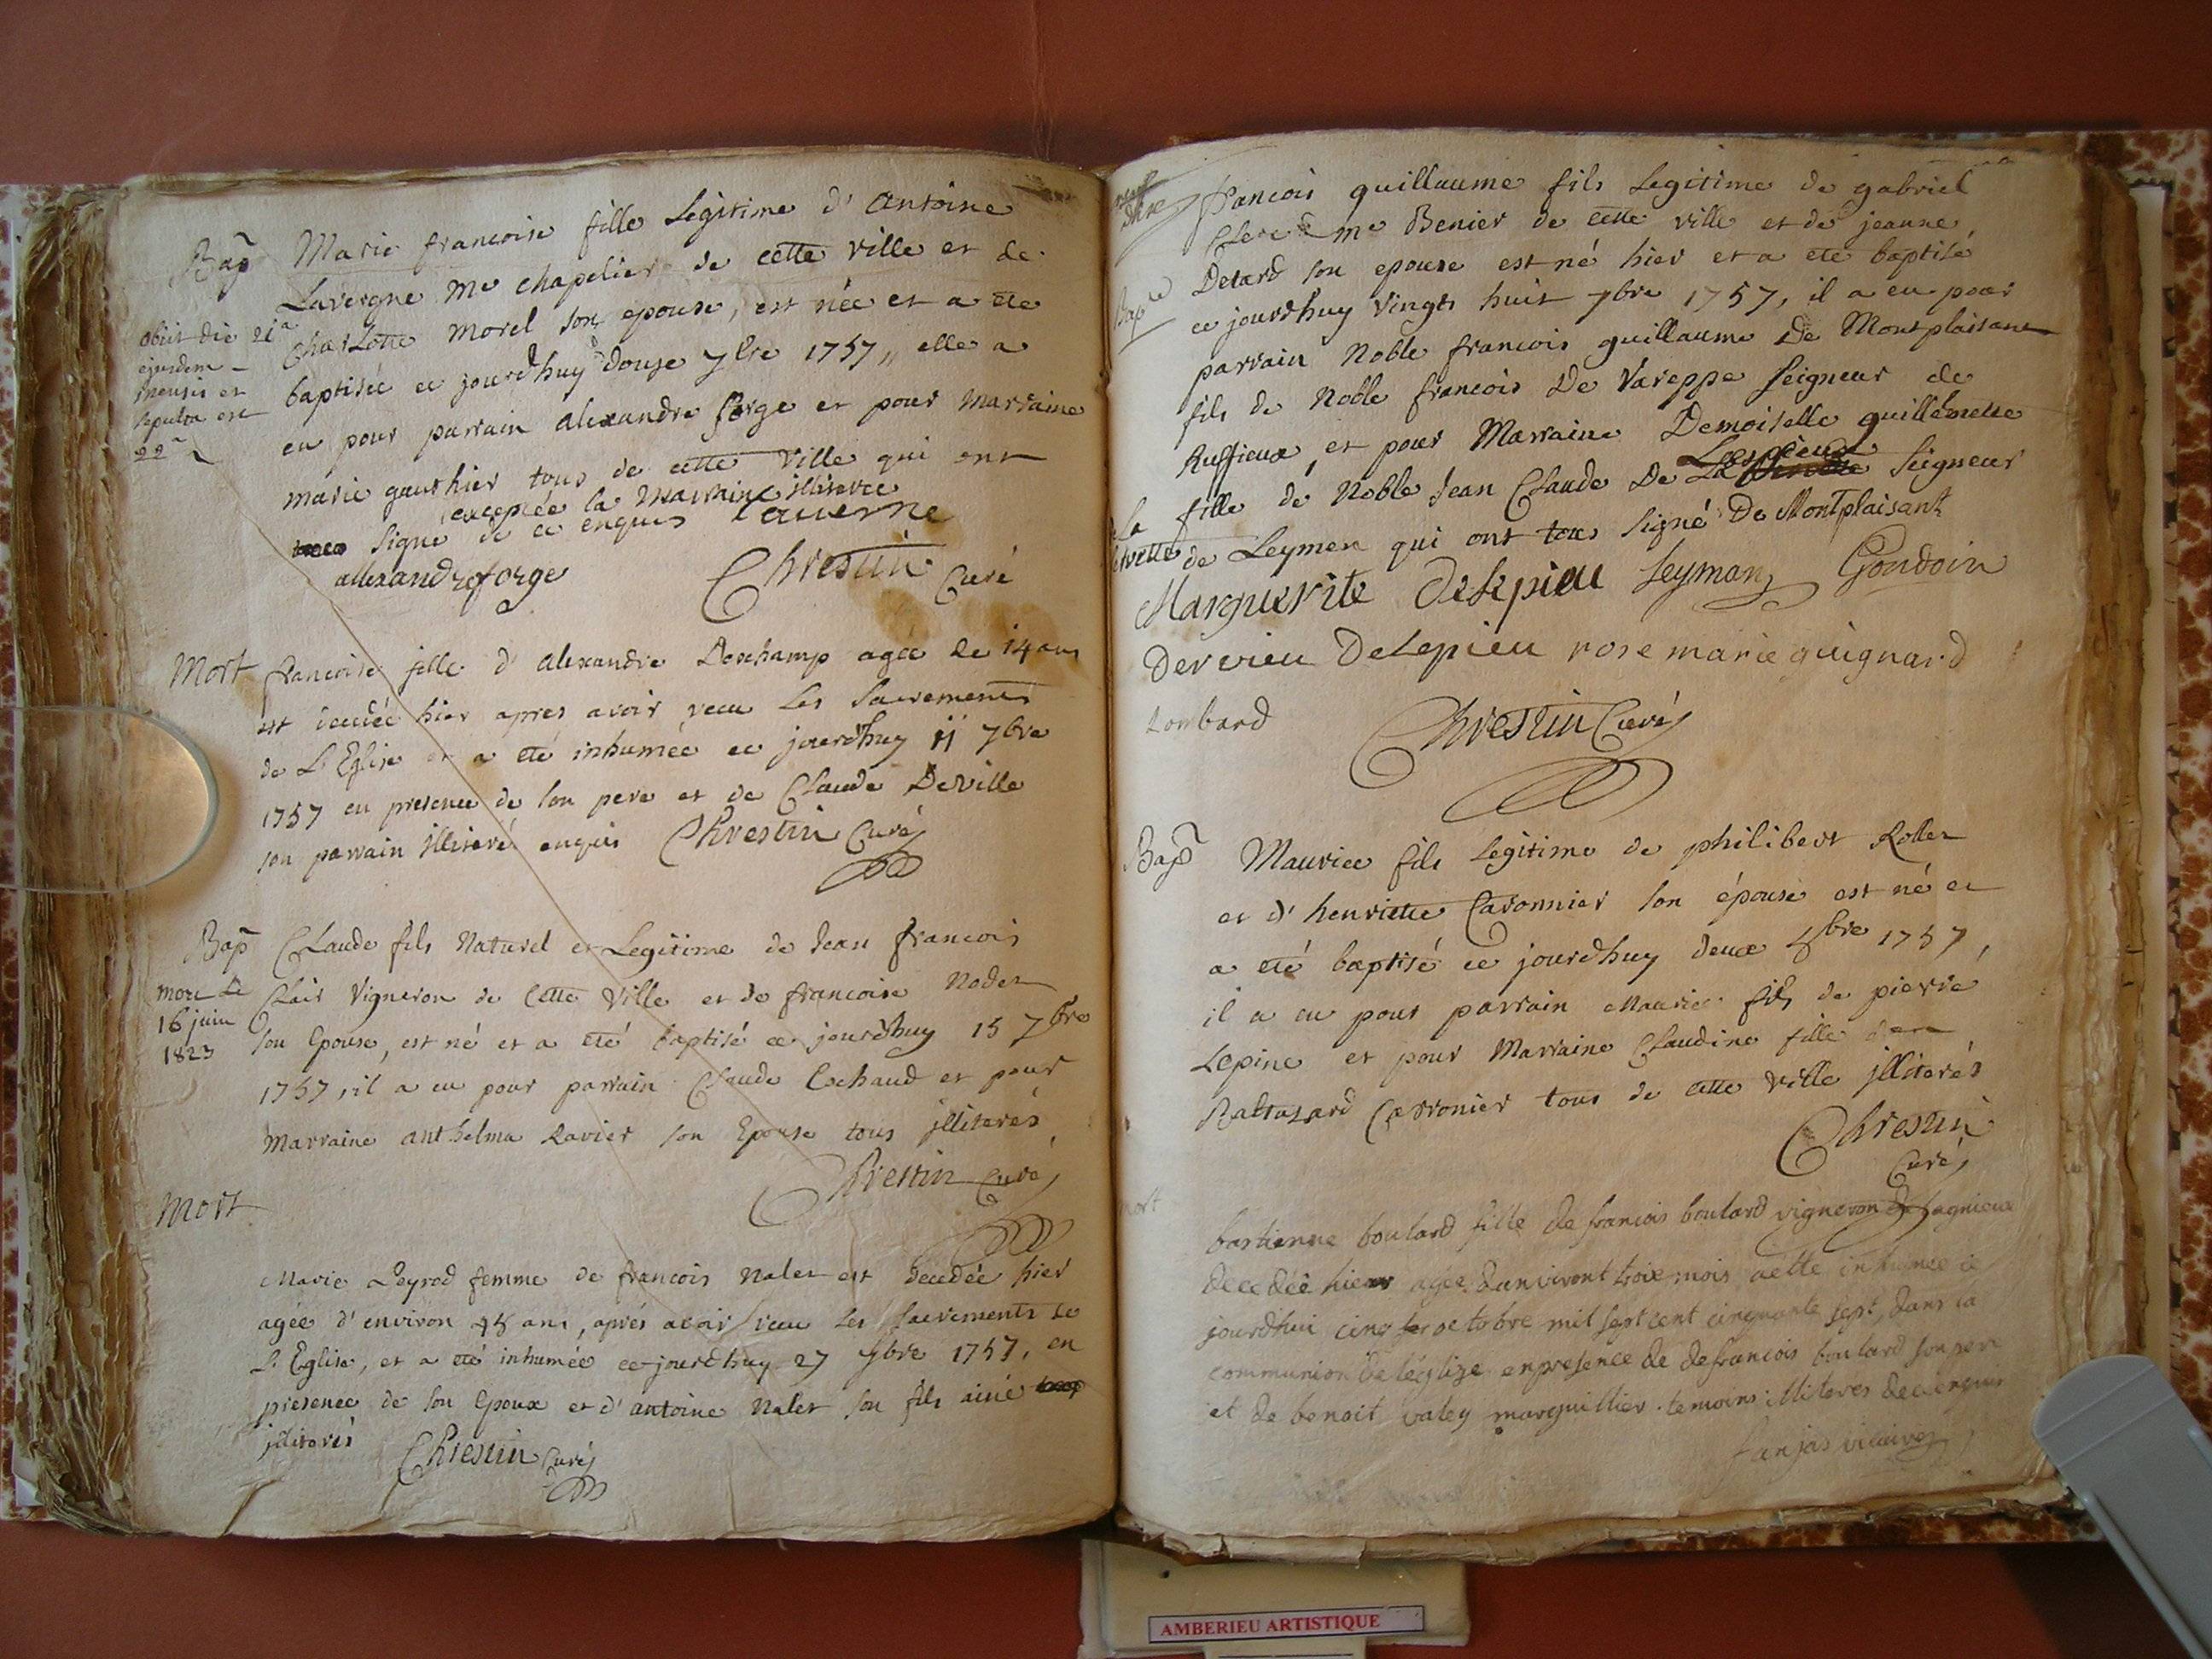 Bap
Marie francoise fille Legitime d' Antoine
Lavergne Me chapelier de cette ville et de
Charlotte Morel son epouse, est née et a ete
baptisée ce jourdhuy douze 7bre 1757,, elle a
eu pour parrain alexandre forge et pour Marraine
marie gauthier tous de cette ville qui ont
exceptée la Marraine illiteree
signe de ce enquis Laverne
allexandre forge Chrestin Curé
obiit die 21a
ejusdem
mensis et
sepulta est
22a
Mort
francoise fille d' alexandre Deschamp agée de 14 ans
est decedée hier apres avoir recu Les Sacrements
de L'Eglise et a eté inhumée ce jourdhuy 11 7bre
1757 en presence de son pere et de Claude Deville
son parrain illiteré enquis Chrestin Curé
Bap
Claude fils Naturel et Legitime de Jean francois
Clair Vigneron de Cette Ville et de francoise Nodet
son Epouse, est né et a eté baptisé ce jourdhuy 15 7bre
1757, il a eu pour parrain Claude Cochaud et pour
Marraine anthelma Ravier son Epouse tous jlliterés
Chrestin Curé
mort le
16 juin
1823
Mort
Marie Peyrod femme de francois Nalet est decedée hier
agée d'environ 45 ans, aprés avoir recu Les Sacrements de
L'Eglise, et a eté inhumée ce jourdhuy 27 7bre 1757, en
presence de son Epoux et d'antoine Nalet son fils ainé
jlliterés Chrestin Curé
Bap
francois guillaume fils Legitime de gabriel
me Benier de cette ville et de jeanne
Detard son epouse est né hier et a eté baptisé
ce jourdhuy Vingt huit 7bre 1757, il a eu pour
parrain Noble francois guillaume De Montplaisant
fils de Noble francois De Vareppe Seigneur de
Ruffieux, et pour Marraine Demoiselle guillemette
Lespieux
fille de Noble Jean Claude De La Seigneur
de Leymen qui ont tous signé De Montplaisant
Marguerite Delepieu Leyman Gondoin
Dervieu Delepieu rose marie guignard
Lombard Chrestin Curé
Bap
Maurice fils Legitime de philibert Rollet
et d' henriette Caronnier son épouse est né et
a eté baptisé ce jourdhuy deux 8bre 1757,
il a eu pour parrain Maurice fils de pierre
Lepine et pour Marraine Claudine fille de
Baltazard Carronier tous de cette ville jlliterés
Chrestin
Curé
mort
bastienne boulard fille de francois boulard vigneron de
decedée hier agee danviront troix mois aette inhumee ce
jourdhui cinq octobre mil sept cent cinquante sept, dans la
communion de léglize enpresence de defrancois boulard son pere
et de benoit valey marguillier temoins illiteres decienquis
vicaire
AMBERIEU ARTISTIQUE